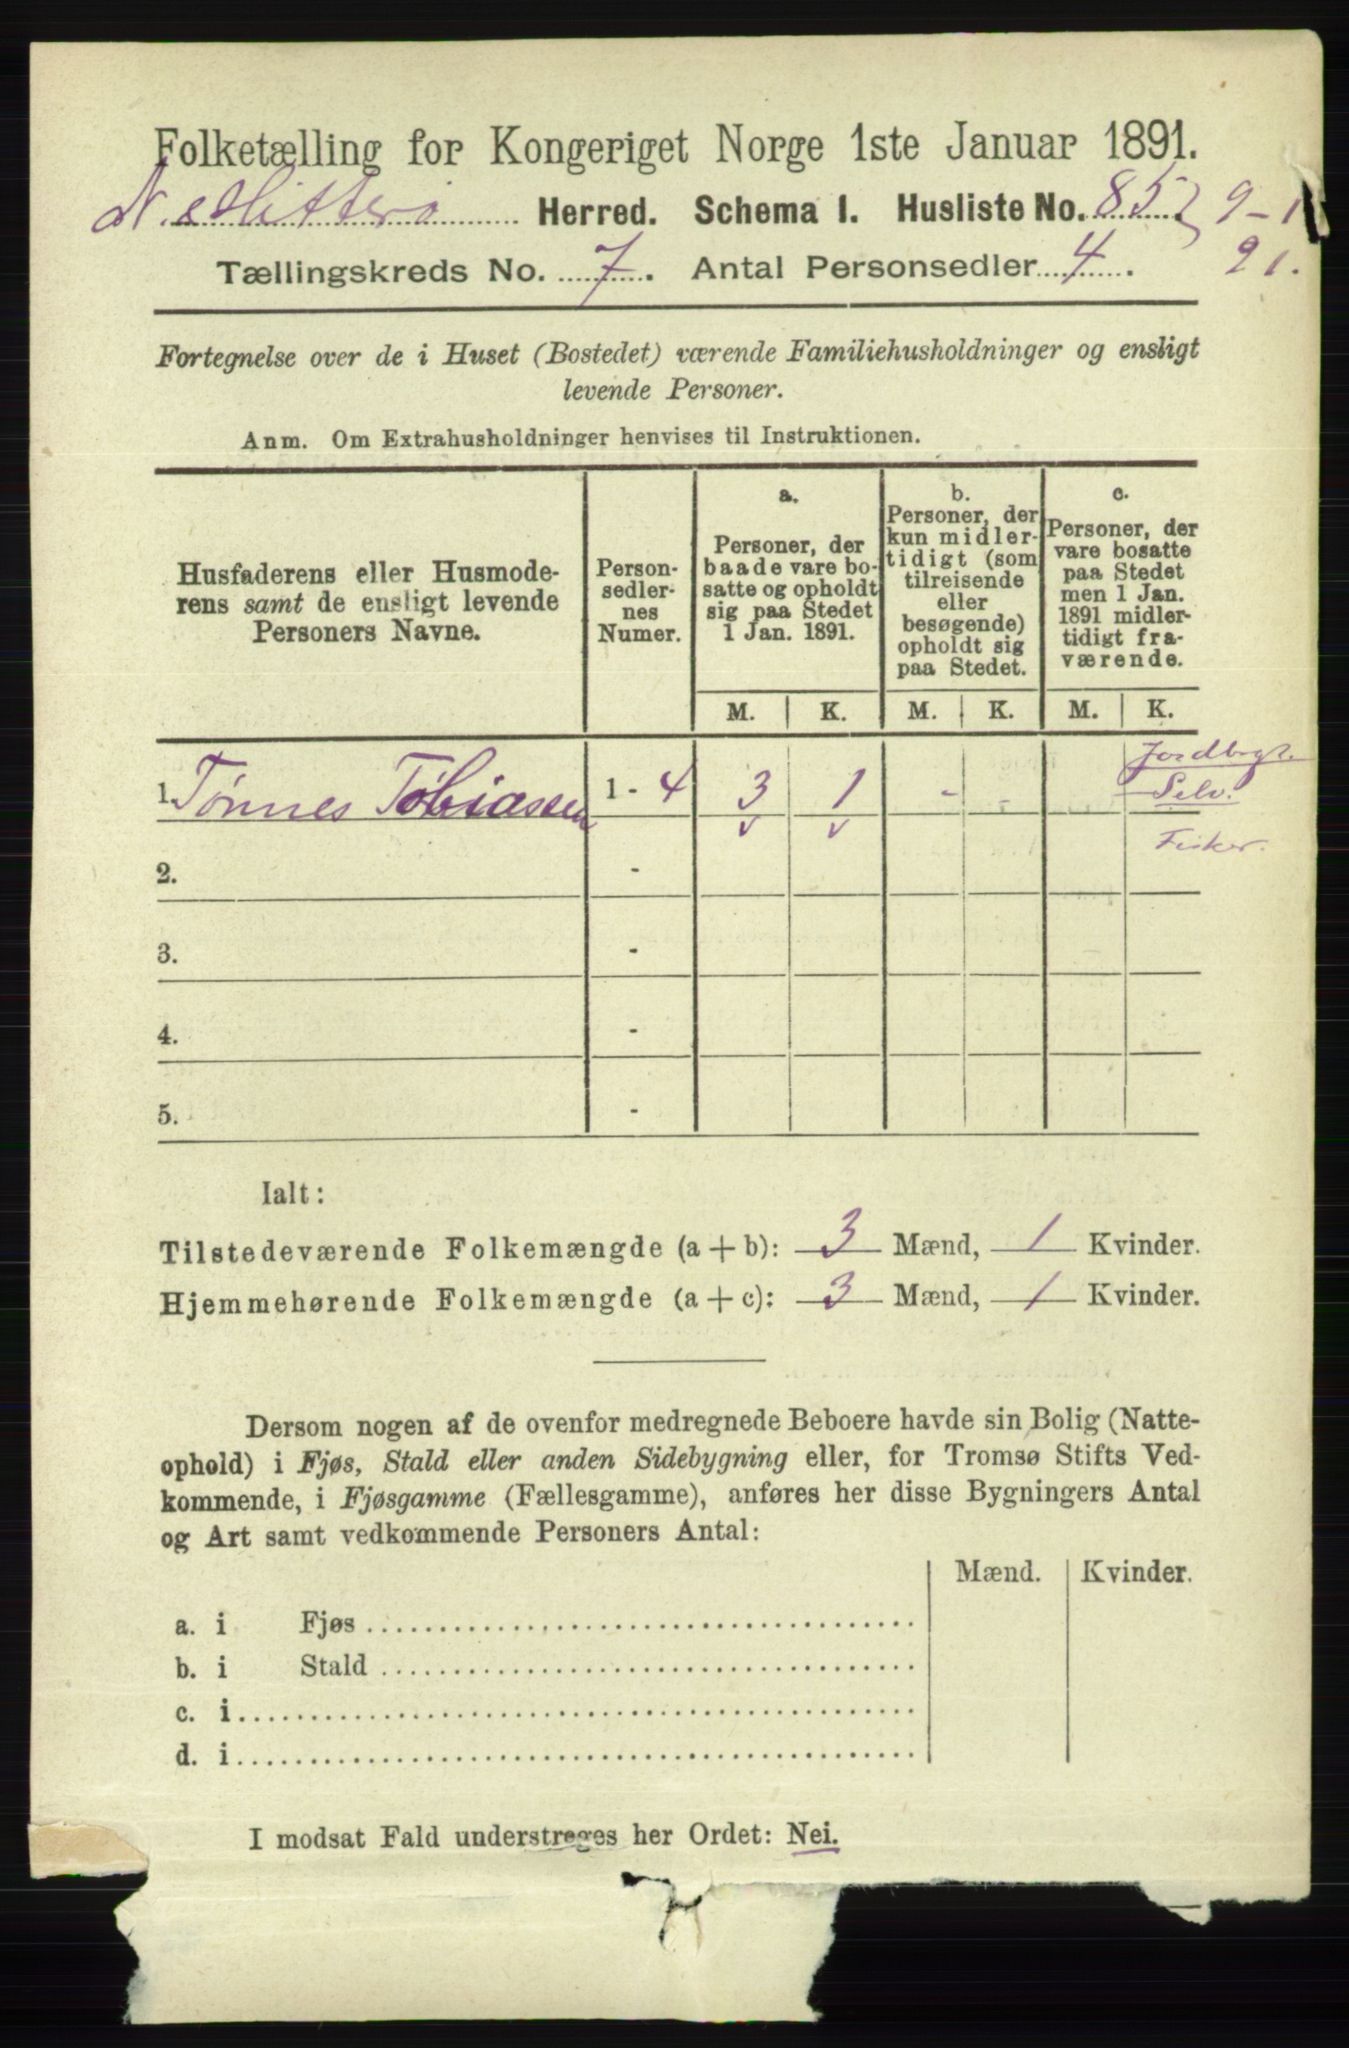 Folketælling for Kongeriget Norge 1ste Januar 1891.
N. & Hitterø Herred. Schema I. Husliste No. 85 9-1
Tællingskreds No. 7. Antal Personsedler 4. 91.
Fortegnelse over de i Huset (Bostedet) værende Familiehusholdninger og ensligt
levende Personer.
Anm. Om Extrahusholdninger henvises til Instruktionen.
Husfaderens eller Husmode-
rens samt de ensligt levende
Personers Navne.
Person-
sedler-
nes
Numer.
a.
Personer, der
baade vare bo-
satte og opholdt
sig paa Stedet
1 Jan. 1891.
b.
Personer, der
kun midler-
tidigt (som
tilreisende
eller
besøgende)
opholdt sig
paa Stedet.
c.
Personer, der
vare bosatte
paa Stedet
men 1 Jan.
1891 midler-
tidigt fra-
værende.
M. K. M. K. M. K.
1. Tønnes Tobiassen 1 - 4 3 1 - - Jordbrgt.
Selv.
v v
Fisker.
2. -
3. -
4. -
5. -
Ialt:
Tilstedeværende Folkemængde (a + b): 3 Mænd, 1 Kvinder.
Hjemmehørende Folkemængde (a + c): 3 Mænd, 1 Kvinder.
Dersom nogen af de ovenfor medregnede Beboere havde sin Bolig (Natte-
ophold) i Fjøs, Stald eller anden Sidebygning eller, for Tromsø Stifts Ved-
kommende, i Fjøsgamme (Fællesgamme), anføres her disse Bygningers Antal
og Art samt vedkommende Personers Antal:
Mænd. Kvinder.
a. i Fjøs
b. i Stald
c. i
d. i
I modsat Fald understreges her Ordet: Nei.